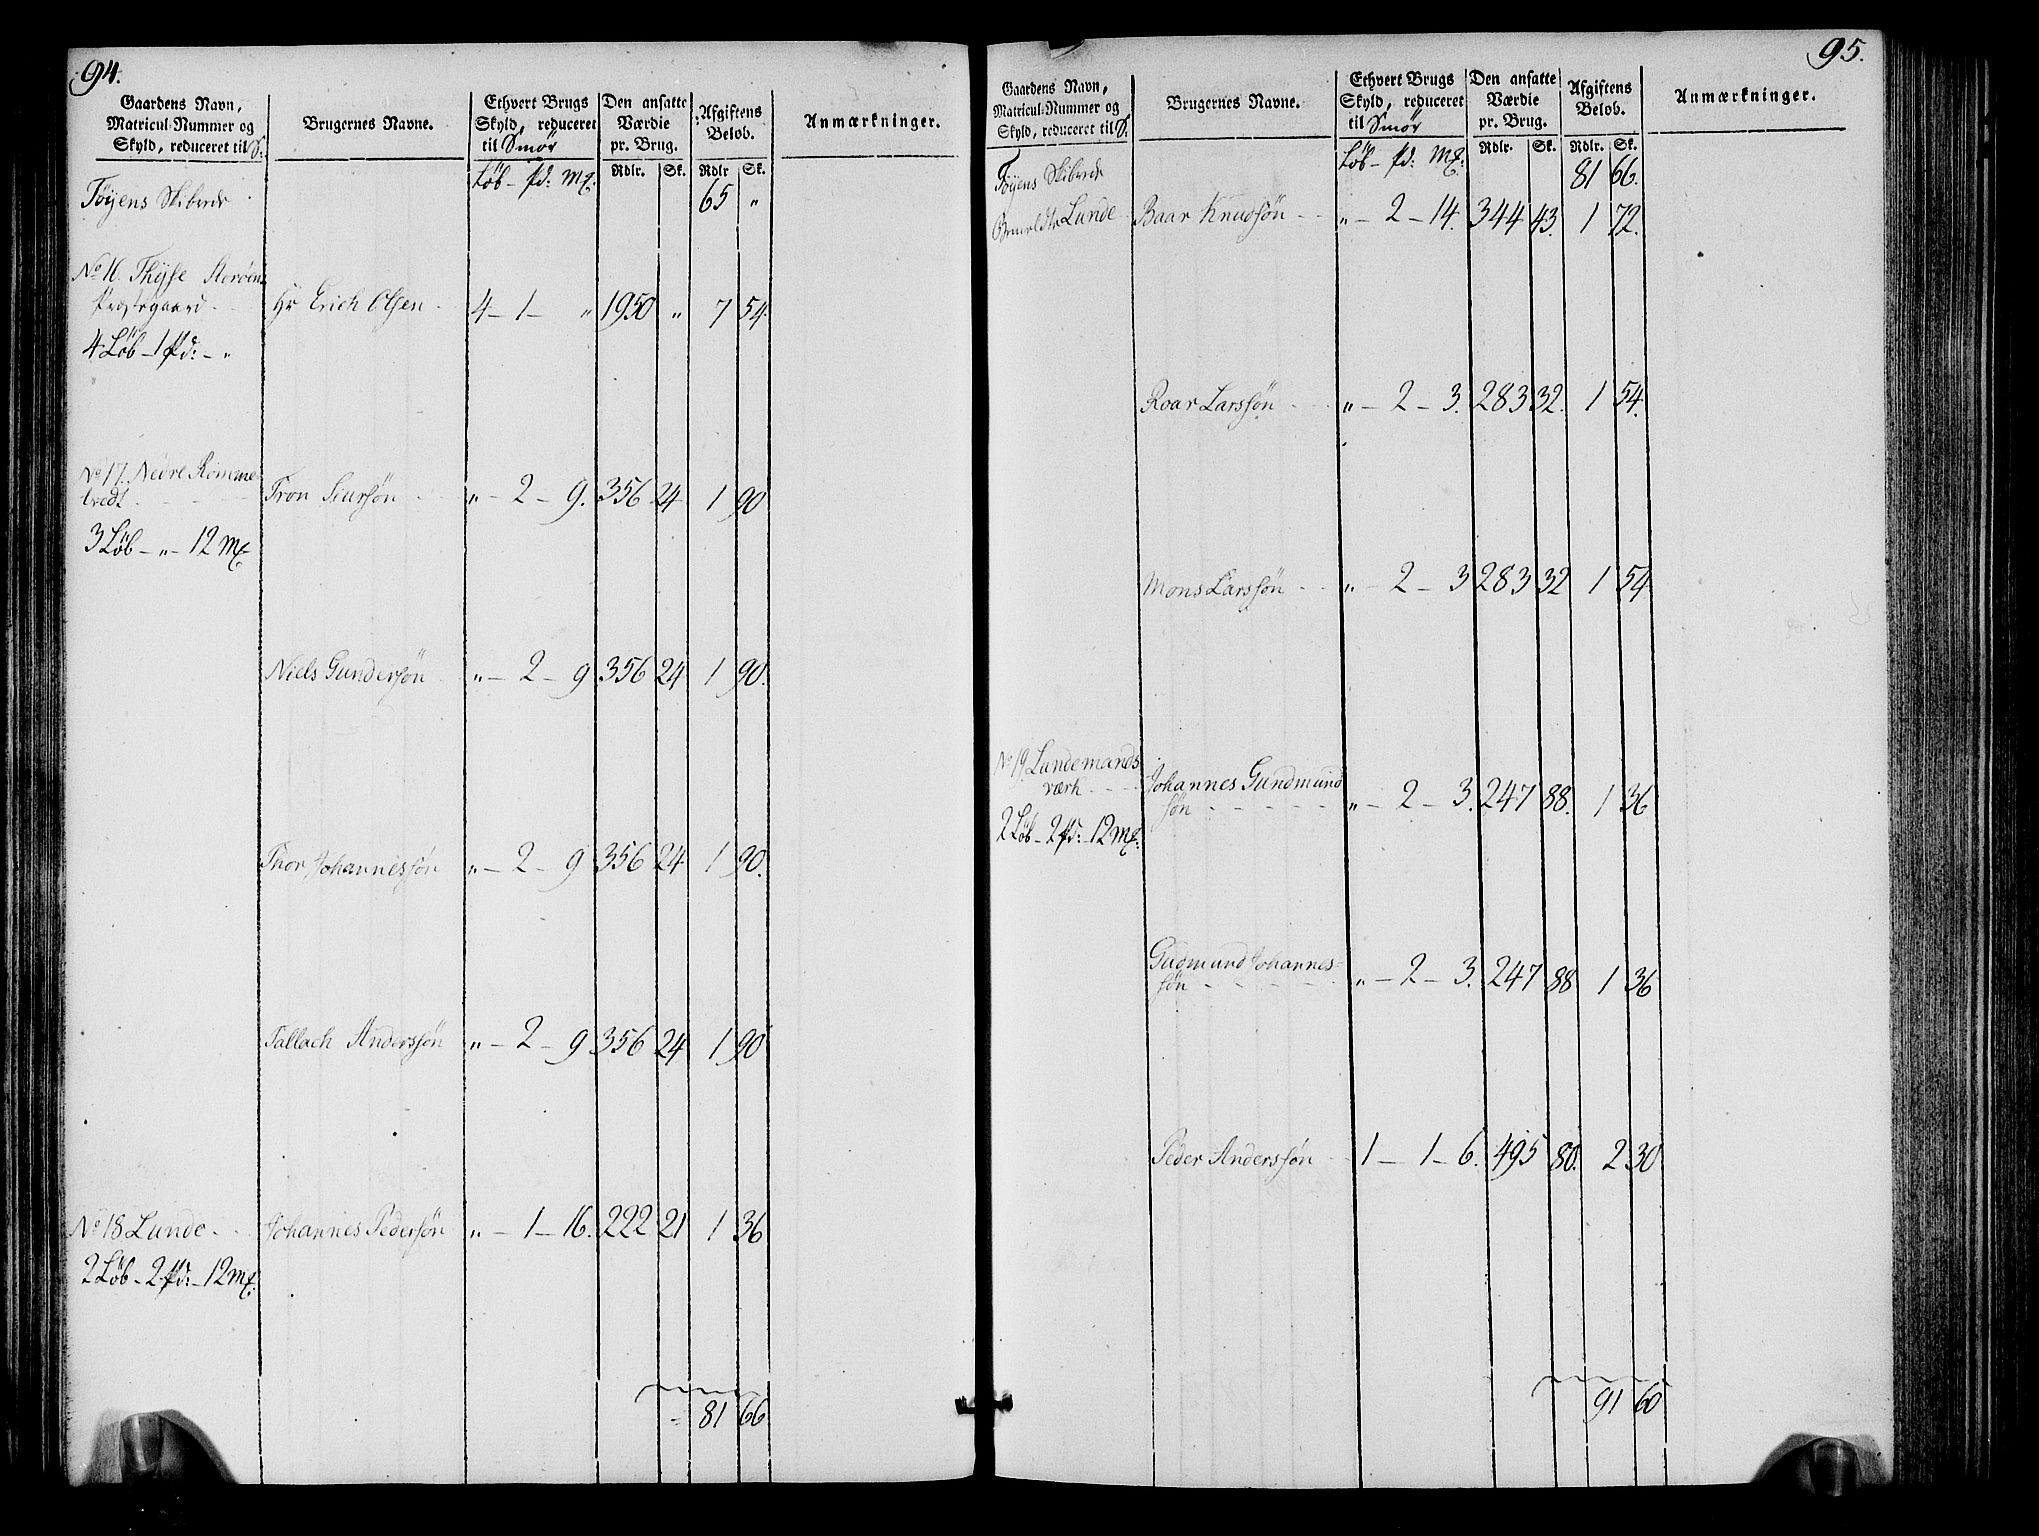 94.
Gaardens Navn, Matricul-Nummer og Skyld, reduceret til S: | Brugernes Navne. | Ethvert Brugs Skyld, reduceret til Smør | Den ansatte Værdie pr. Brug. | Afgiftens Beløb. | Anmærkninger.
Løb – pd: mk: | Rdlr. | Sk. | Rdlr | Sk.
Føyens Skibrede 65 "
No 16. Thyse Storöens
Præstegaard Hr Erich Olsen 4 – 1 – " 1950 " 7 54.
4 Løb – 1 pd: – "
No 17. Nedre Rømme-
tvedt Tron Siursøn " – 2 – 9. 356 24 1 90
3 Løb – " – 12 mk
Niels Gundersøn " – 2 – 9 356 24 1 90.
Thor Johannessøn " – 2 – 9 356 24 1 90.
Tallach Anderssøn " – 2 – 9 356 24 1 90
No 18 Lunde Johannes Pedersøn " – 1 – 16. 222 21 1 36
2 Løb – 2 pd: – 12 mk:
81 66
95.
Gaardens Navn, Matricul-Nummer og Skyld, reduceret til S. | Brugernes Navne. | Ethvert Brugs Skyld, reduceret til Smør | Den ansatte Værdie pr. Brug. | Afgiftens Beløb. | Anmærkninger.
Løb – pd: mk: | Rdlr. | Sk. | Rdlr. | Sk.
Føyens Skibrede 81 66.
Lunde Baar Knudsøn " – 2 – 14. 344 43. 1 72.
Roar Larssøn " – 2 – 3. 283 32. 1 54.
Mons Larssøn " – 2 – 3 283 32 1 54
No 19 Lundemands- Johannes Gundmund
værk søn " – 2 – 3. 247 88. 1 36
2 Løb – 2 pd: – 12 mk:
Gudmund Johannes-
søn " – 2 – 3. 247 88 1 36
Peder Anderssøn 1 – 1 – 6. 495 80. 2 30
91 60